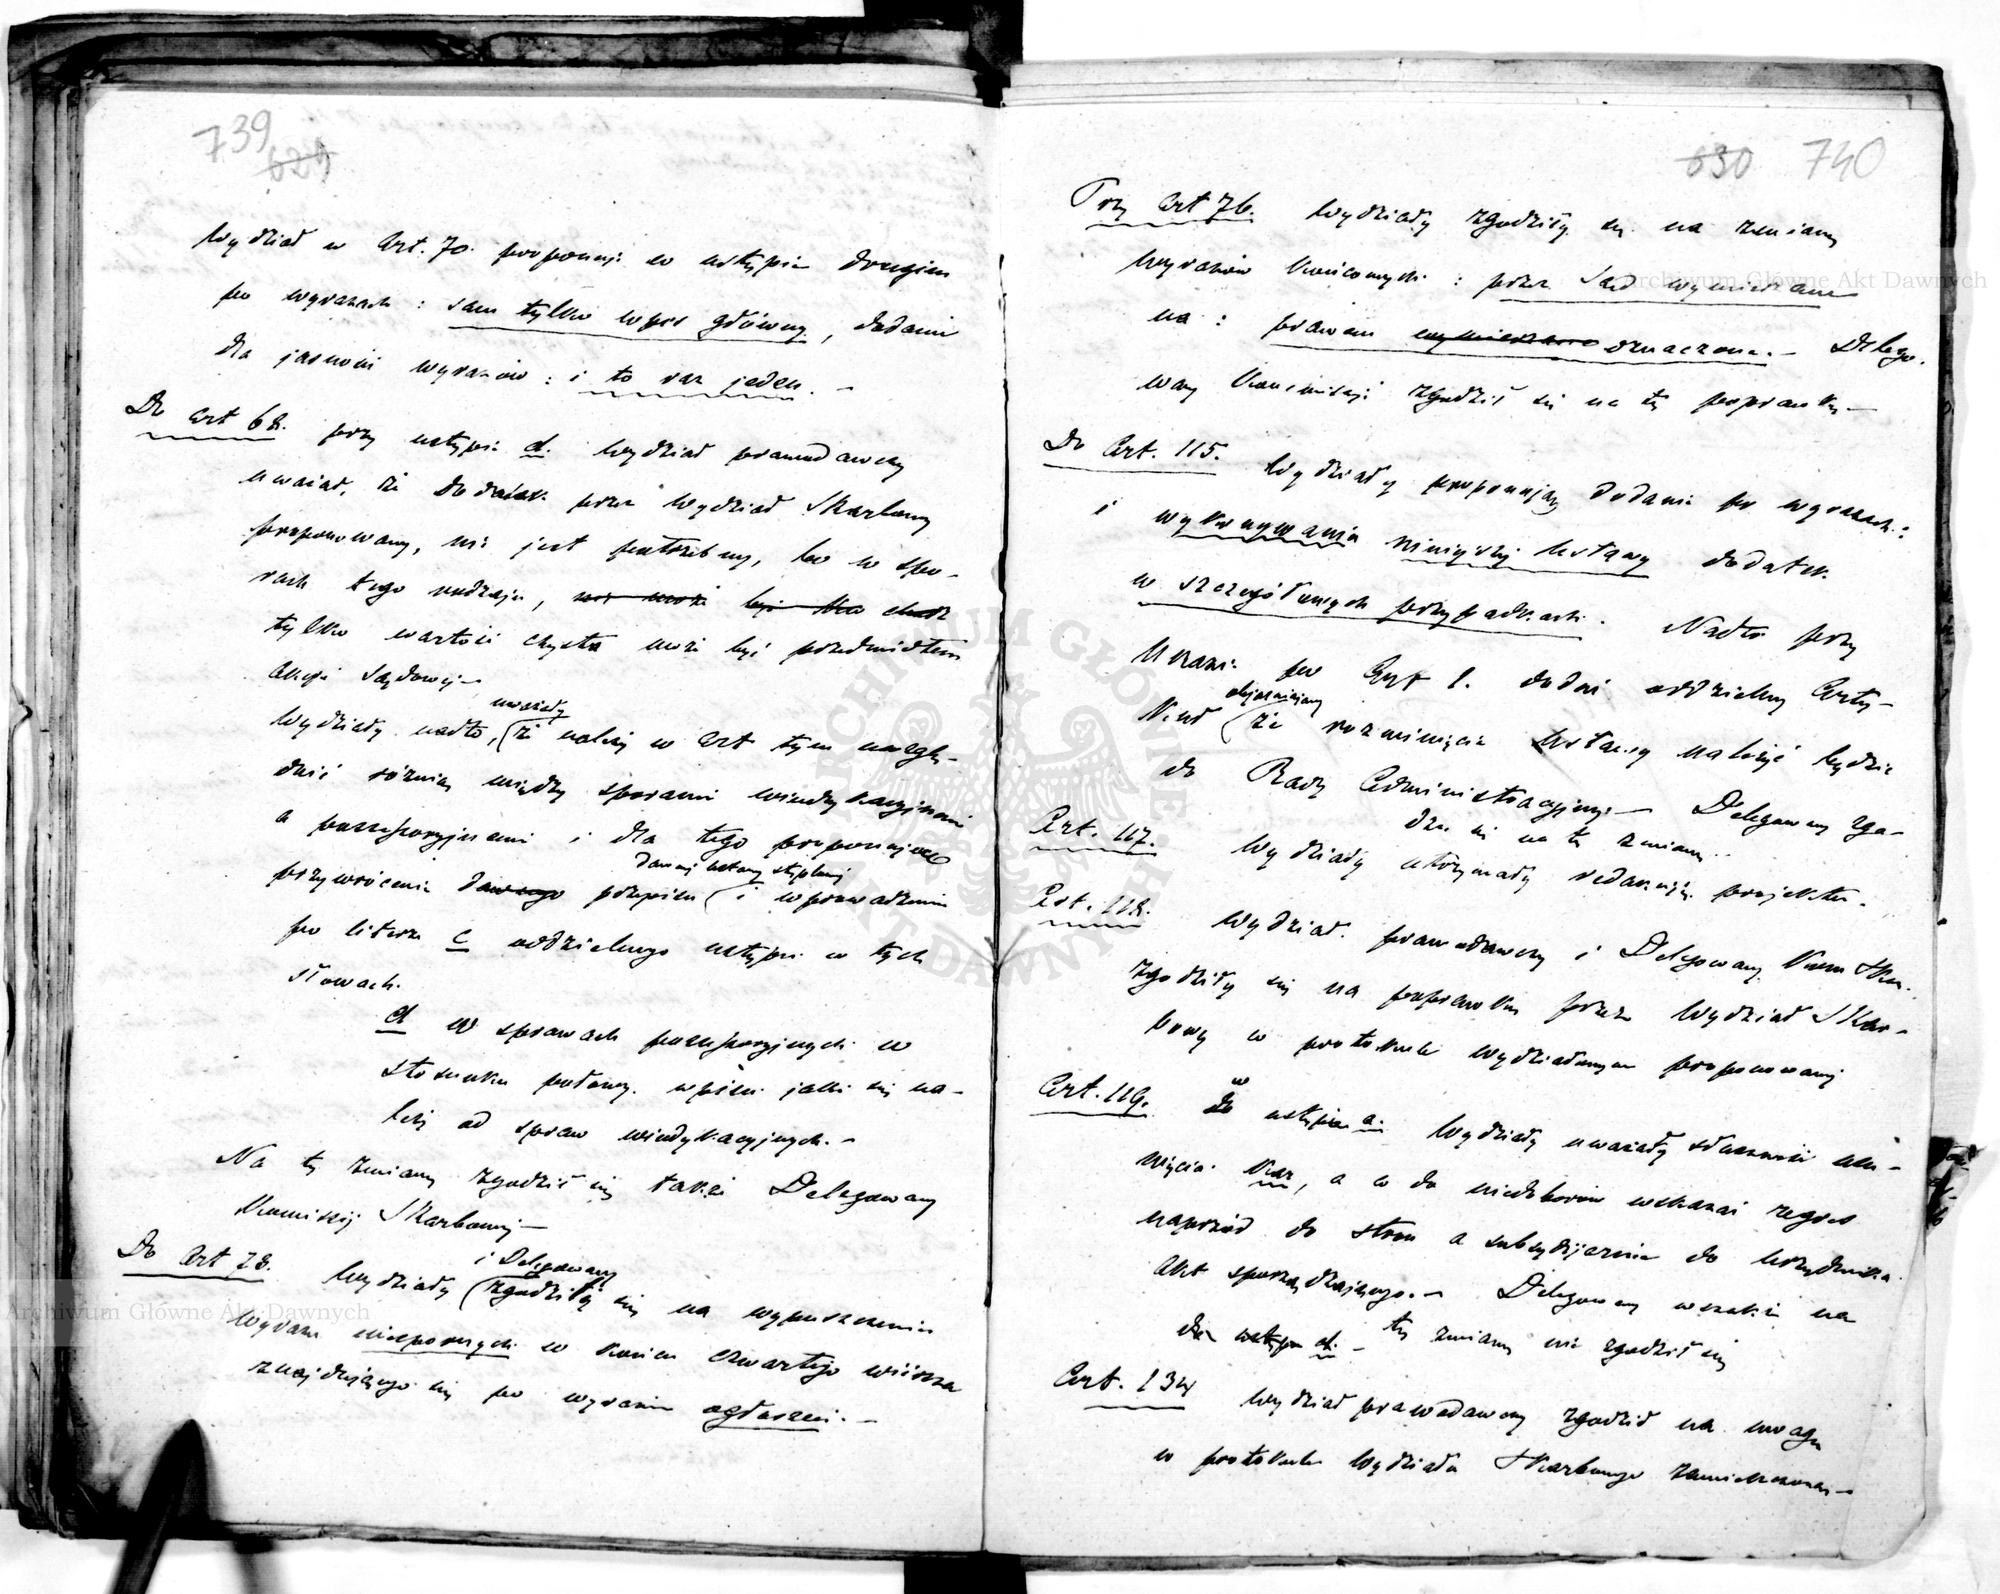 739
629
Wydział w Art. 70. proponuje w ustępie drugim
po wyrazach : sam tylko wpis główny, dodanie
dla jasności wyrazów : i to raz jeden. –
Do Art 68. przy ustępie d. Wydział prawodawczy
uważał, że dodatek przez Wydział Skarbowy
proponowany, nie jest potrzebny, bo w spo-
rach tego rodzaju, nie może być
tylko wartość czysta może być przedmiotem
akcji Sądowej –
Wydziały nadto, uważały
(że należy w Art tym uwzglę-
dnić różnicę między sporami windykacyjnemi
a possessoryjnemi i dla tego proponują
przywrócenie dawnego przepisu (dawnej ustawy stęplowej i wprowadzenie
po literze c oddzielnego ustępu w tych
słowach.
d w sprawach possessoryjnych w
stosunku połowy wpisu jaki się na-
leży od spraw windykacyjnych. –
Na tę zmianę zgodził się także Delegowany
Kommissji Skarbowej –
i Delegowany
Do Art 73. Wydziały (zgodziły się na wypuszczenie
wyrazu niespornych w końcu czwartego wiersza
znajdującego się po wyrazie ogłoszeń. –
630 740
Przy Art 76. Wydziały zgodziły się na zmianę
wyrazów końcowych : przez Sąd wymierzane
na : prawem wymierzane oznaczone. – Delego-
wany Kommissji zgodził się na tę poprawkę –
Do Art. 115. Wydziały proponują dodanie po wyrazach :
i wykonywania niniejszej Ustawy dodatek
w szczegółowych przypadkach. Nadto przy
Ukazie po Art 1. dodać oddzielny Arty-
kuł (objaśniający że rozwinięcie Ustawy należeć będzie
do Rady Administracyjnej. – Delegowany zga-
dza się na tę zmianę.
Art. 117. Wydziały utrzymały redakcję projektu.
Art. 118. Wydział prawodawczy i Delegowany Kom Skar.
zgodziły się na poprawkę przez Wydział Skar-
bowy w protokule wydziałowym proponowaną
Art. 119. w
Do ustępu a. Wydziały uważały słuszność usu-
nięcia kar, a co do niedoborów wskazać regres
naprzód do stron a subsydjarnie do Urzędnika
Akt sporządzającego. – Delegowany wszakże na
tę zmianę nie zgodził się
Art. 134 Wydział prawodawczy zgodził na uwagę
w protokule Wydziału Skarbowego zamieszczoną –
Archiwum Główne Akt Dawnych
Archiwum Główne Akt Dawnych
ARCHIWUM GŁÓWNE AKT DAWNYCH